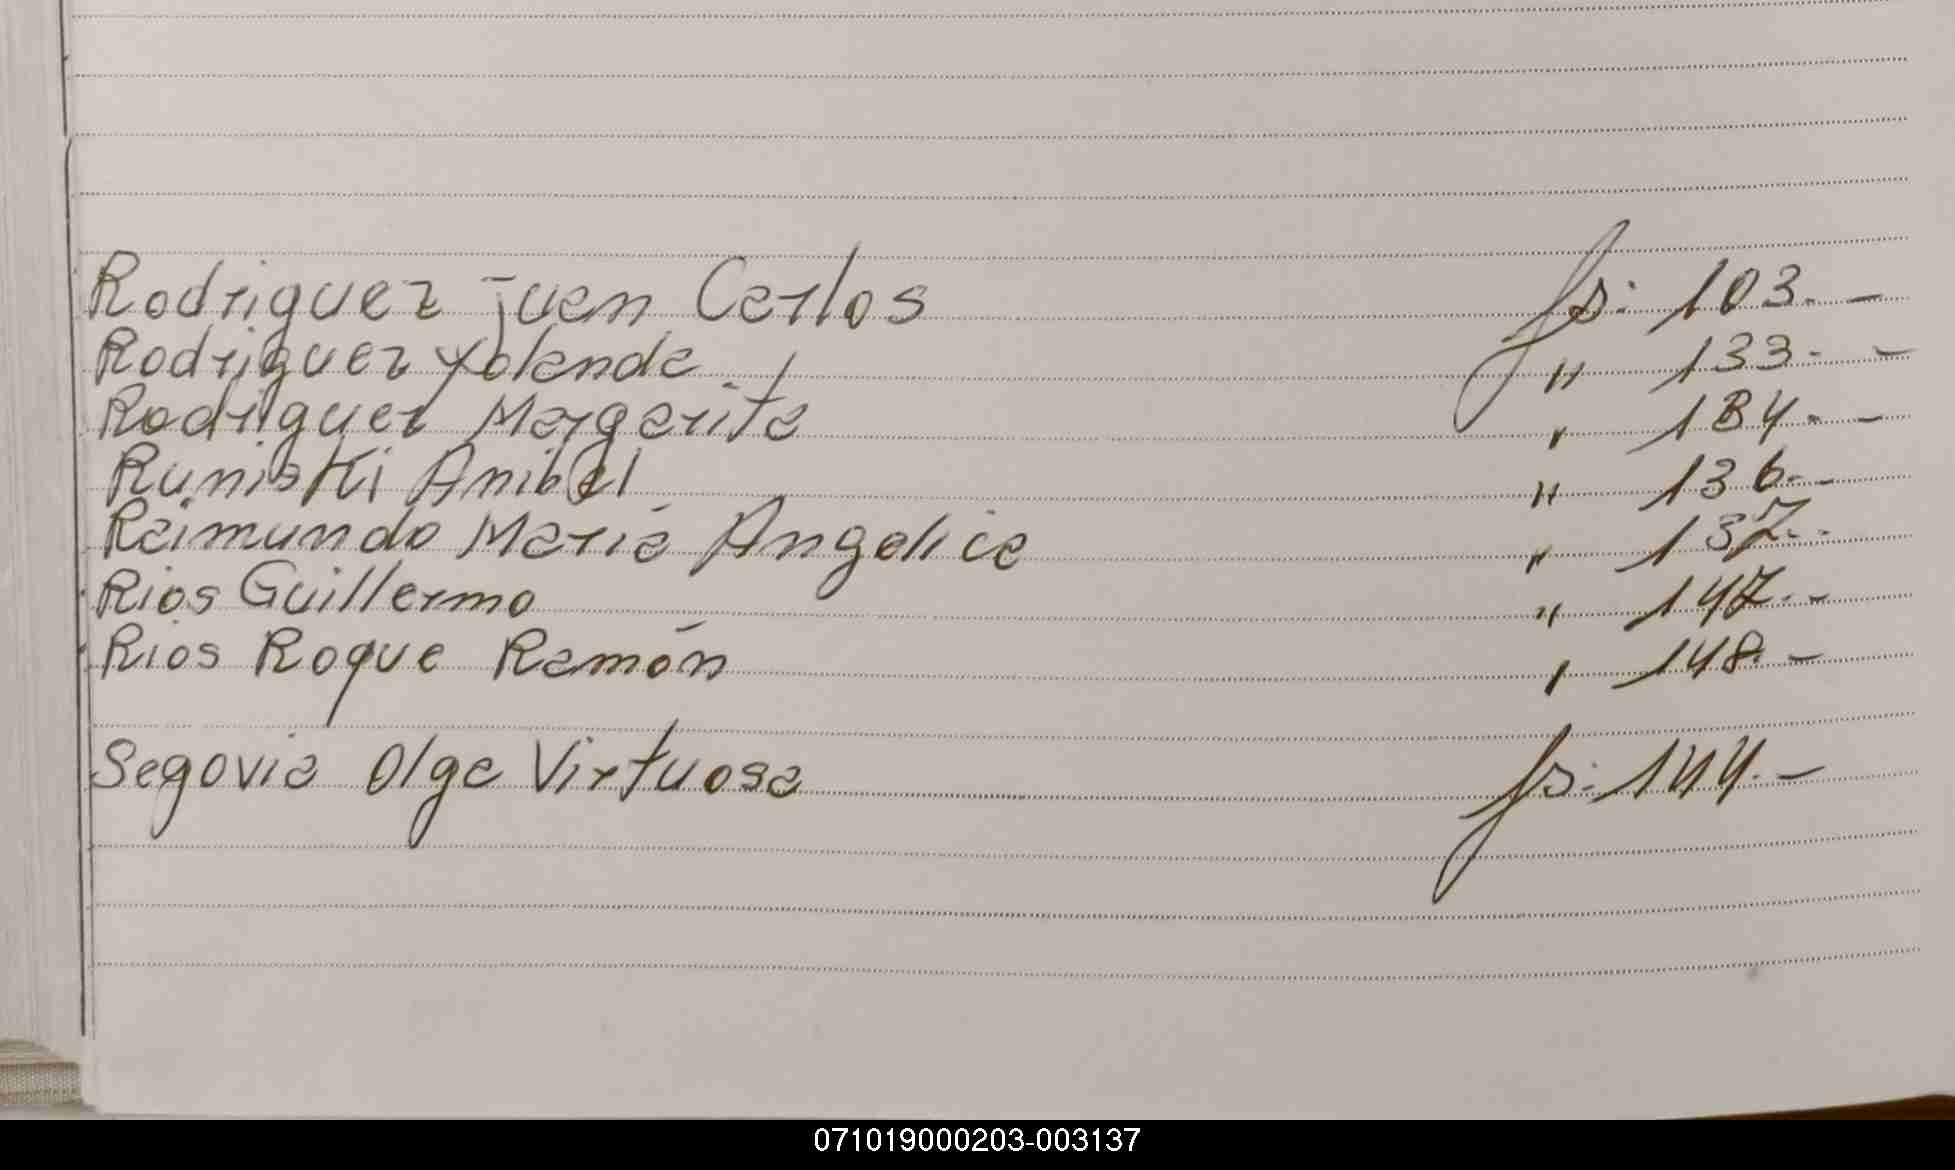 Rodriguez Juan Carlos fs: 103.-
Rodriguez Yolanda " 133.-
Rodriguez Margarita " 134.-
Runiski Anibal " 136.-
Raimundo María Angelica " 137.-
Rios Guillermo " 147.-
Rios Roque Ramón " 148.-
Segovia Olga Virtuosa fs: 144.-
071019000203-003137